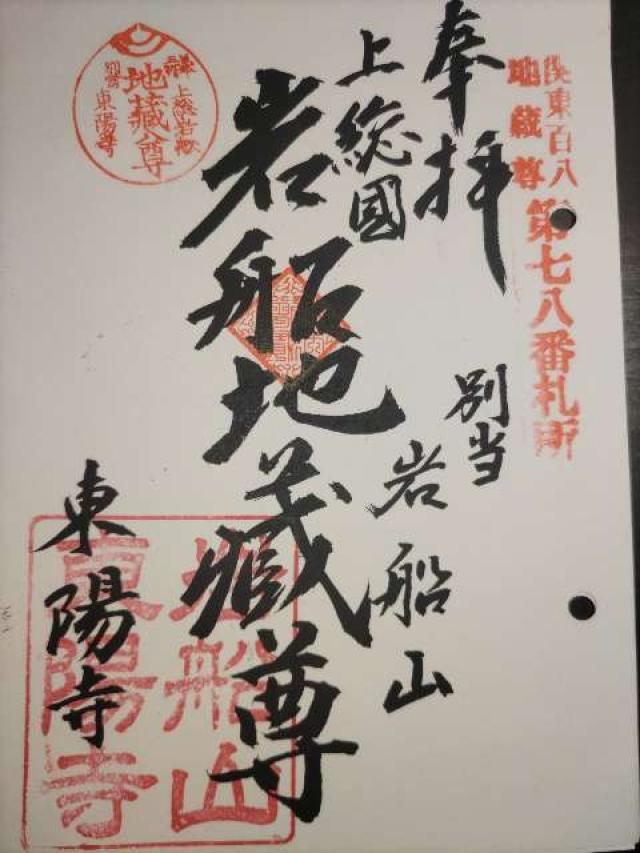 関東百八
地蔵尊
第七八番札所
奉拝
上総國
別当
岩船山
岩船地蔵尊
東陽寺
地蔵尊
別当
東陽寺
岩船山
東陽寺